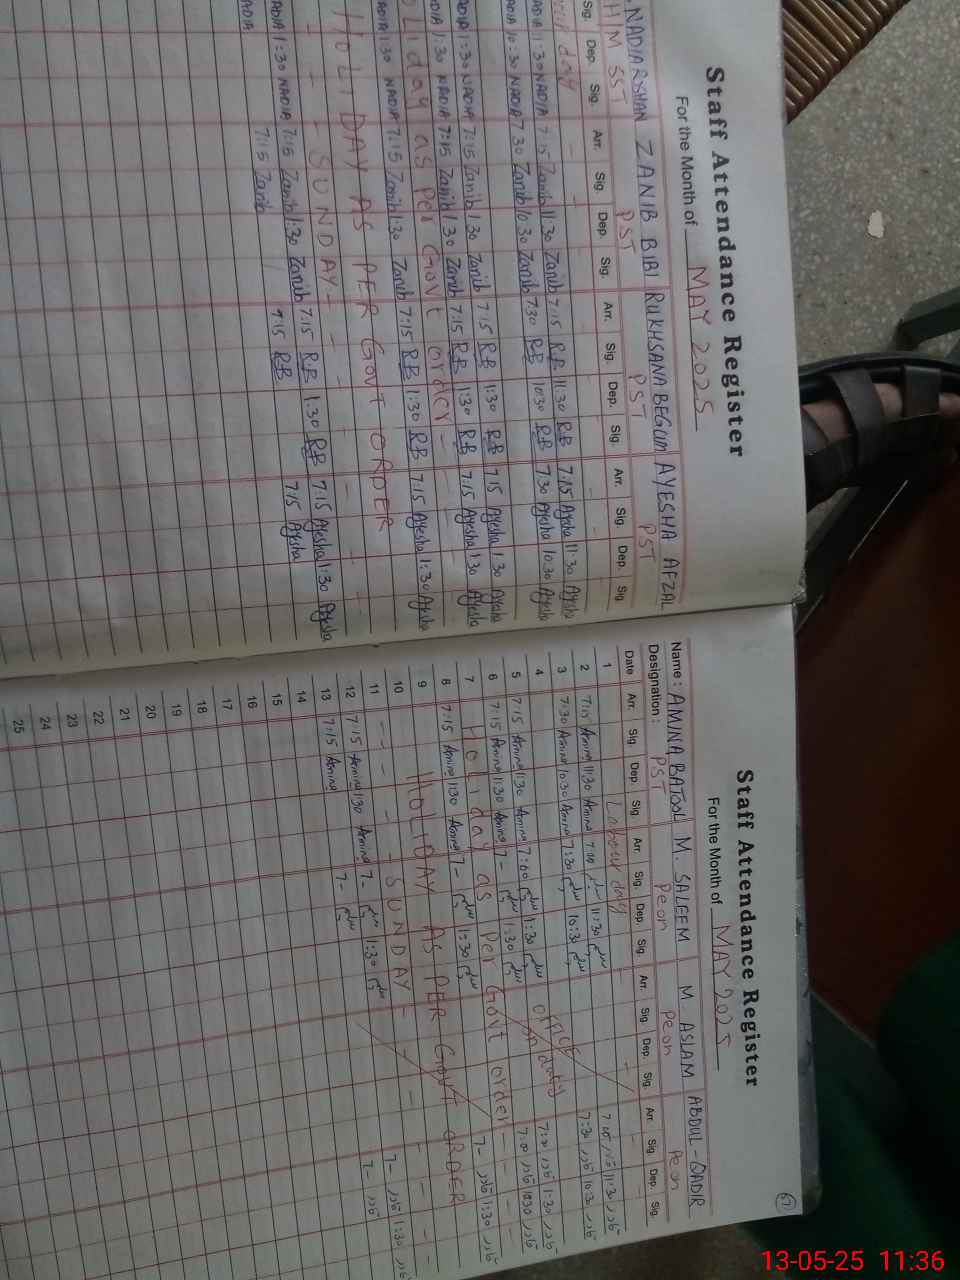 Staff Attendance Register
For the Month of MAY 2025
NADIA RAHIM ZANIB BIBI RUKHSANA BEGUM AYESHA AFZAL
SST PST PST PST
Sig. Dep. Sig. Arr. Sig. Dep. Sig. Arr. Sig. Dep. Sig. Arr. Sig. Dep. Sig.
11:30 NADIA 7:15 Zanib 11:30 Zanib 7:15 R.B 11:30 R.B 7:15 Ayesha 11:30 Ayesha
NADIA 10:30 NADIA 7:30 Zanib 10:30 Zanib 7:30 R.B 10:30 R.B 7:30 Ayesha 10:30 Ayesha
NADIA 1:30 NADIA 7:15 Zanib 1:30 Zanib 7:15 R.B 1:30 R.B 7:15 Ayesha 1:30 Ayesha
NADIA 1:30 NADIA 7:15 Zanib 1:30 Zanib 7:15 R.B 1:30 R.B 7:15 Ayesha 1:30 Ayesha
Holiday as per Govt order
NADIA 1:30 NADIA 7:15 Zanib 1:30 Zanib 7:15 R.B 1:30 R.B 7:15 Ayesha 1:30 Ayesha
HOLIDAY AS PER Govt ORDER
- - - SUNDAY - - -
NADIA 1:30 NADIA 7:15 Zanib 1:30 Zanib 7:15 R.B 1:30 R.B 7:15 Ayesha 1:30 Ayesha
NADIA 7:15 Zanib R.B 7:15 Ayesha
67
Staff Attendance Register
For the Month of MAY 2025
Name: AMINA BATOOL M. SALEEM M. ASLAM ABDUL-QADIR
Designation: PST Peon Peon Peon
Date Arr. Sig. Dep. Sig. Arr. Sig. Dep. Sig. Arr. Sig. Dep. Sig. Arr. Sig. Dep. Sig.
1 Labour day
2 7:15 Amina 11:30 Amina 7:00 11:30 7:00 قادر 11:30 قادر
3 7:30 Amina 10:30 Amina 7:30 10:30 7:30 قادر 10:30 قادر
4
5 7:15 Amina 1:30 Amina 7:00 1:30 office on duty 7:00 قادر 1:30 قادر
6 7:15 Amina 1:30 Amina 7- 1:30 7:00 قادر قادر
7 Holiday as per Govt order
8 7:15 Amina 1:30 Amina 7- 1:30 7- قادر 1:30 قادر
9 HOLIDAY AS PER Govt ORDER
10
11 - - - SUNDAY - - -
12 7:15 Amina 1:30 Amina 7- 1:30 7- قادر 1:30 قادر
13 7:15 Amina 7- 7- قادر
14
15
16
17
18
19
20
21
22
23
24
25
13-05-25 11:36